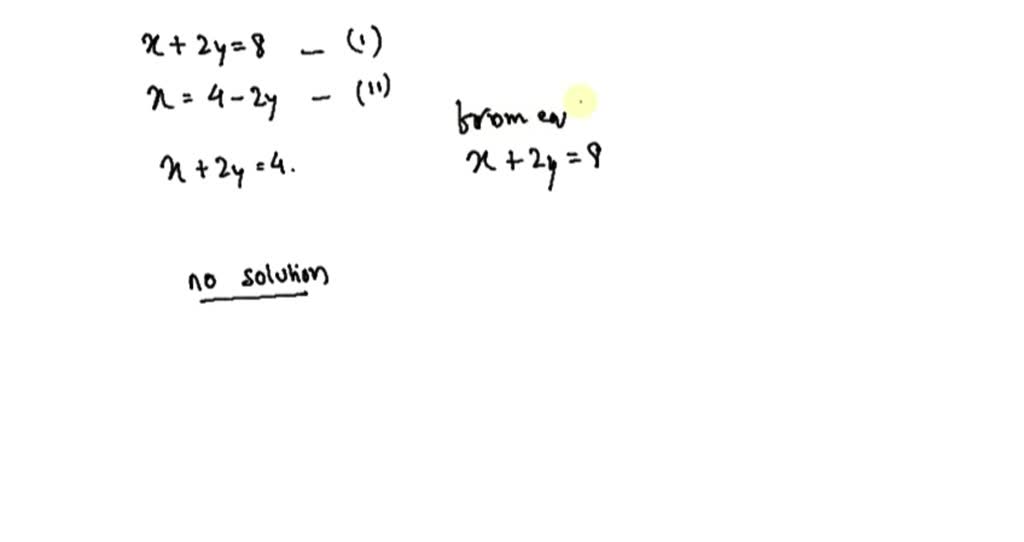 x + 2y = 8 — (i)
x = 4 - 2y — (ii)
x + 2y = 4.
from eq
x + 2y = 8
no solution